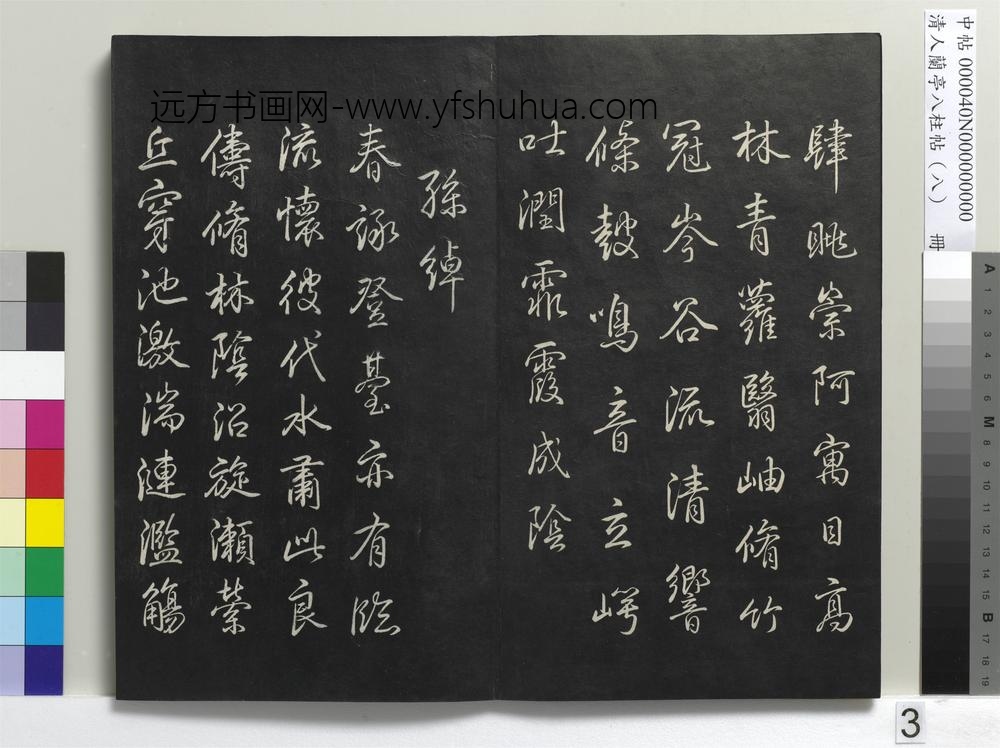 远方书画网-www.yfshuhua.com
中帖 000040N000000000
清人蘭亭八柱帖（八） 冊
肆眺崇阿寓目高
林青蘿翳岫脩竹
冠岑谷流清響
條鼓鳴音玄崿
吐潤霏霞成陰
孫綽
春詠登臺亦有臨
流懷彼代水肅此良
儔脩林陰沼旋瀨縈
丘穿池激湍漣濫觴
A 1 2 3 4 5 6 M 8 9 10 11 12 13 14 15 B 17 18 19
3